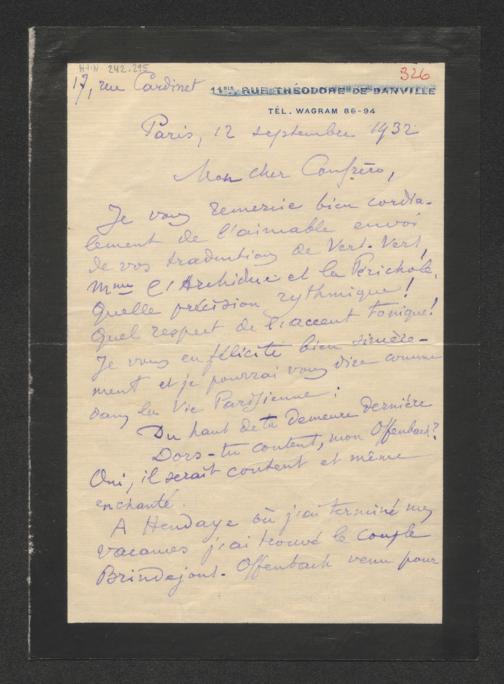 H.I.N. 242.295
326
17, rue Cardinet
11BIS, RUE THÉODORE DE BANVILLE
TÉL. WAGRAM 86-94
Paris, 12 septembre 1932
Mon cher Confrère,
Je vous remercie bien cordia-
lement de l'aimable envoi
de vos traductions de Vert-Vert,
Mme l'Archiduc et la Périchole.
Quelle précision rythmique!
Quel respect de l'accent tonique!
Je vous en félicite bien sincère-
ment et je pourrai vous dire comme
dans la Vie Parisienne:
Du haut de ta demeure dernière
Dors-tu content, mon Offenbach?
Oui, il serait content et même
enchanté.
A Hendaye où j'ai terminé mes
vacances j'ai trouvé le couple
Brindejont-Offenbach venu pour